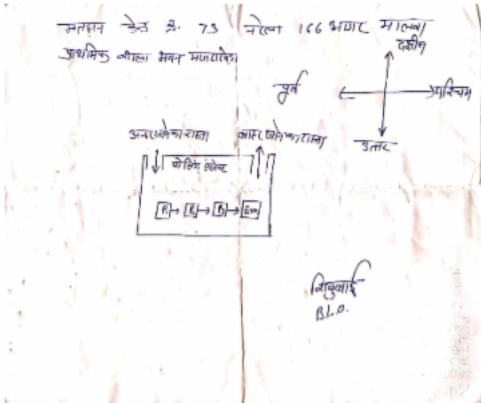 मतदान केन्द्र क्र. 73 166 अगर मालवा
प्राथमिक शाला भवन
दक्षीण
पूर्व
पश्चिम
उत्तर
अन्दर जाने का रास्ता
बाहर जाने का रास्ता
पोलिंग एजेन्ट
P1 → P2 → P3 → Evm
B.L.O.